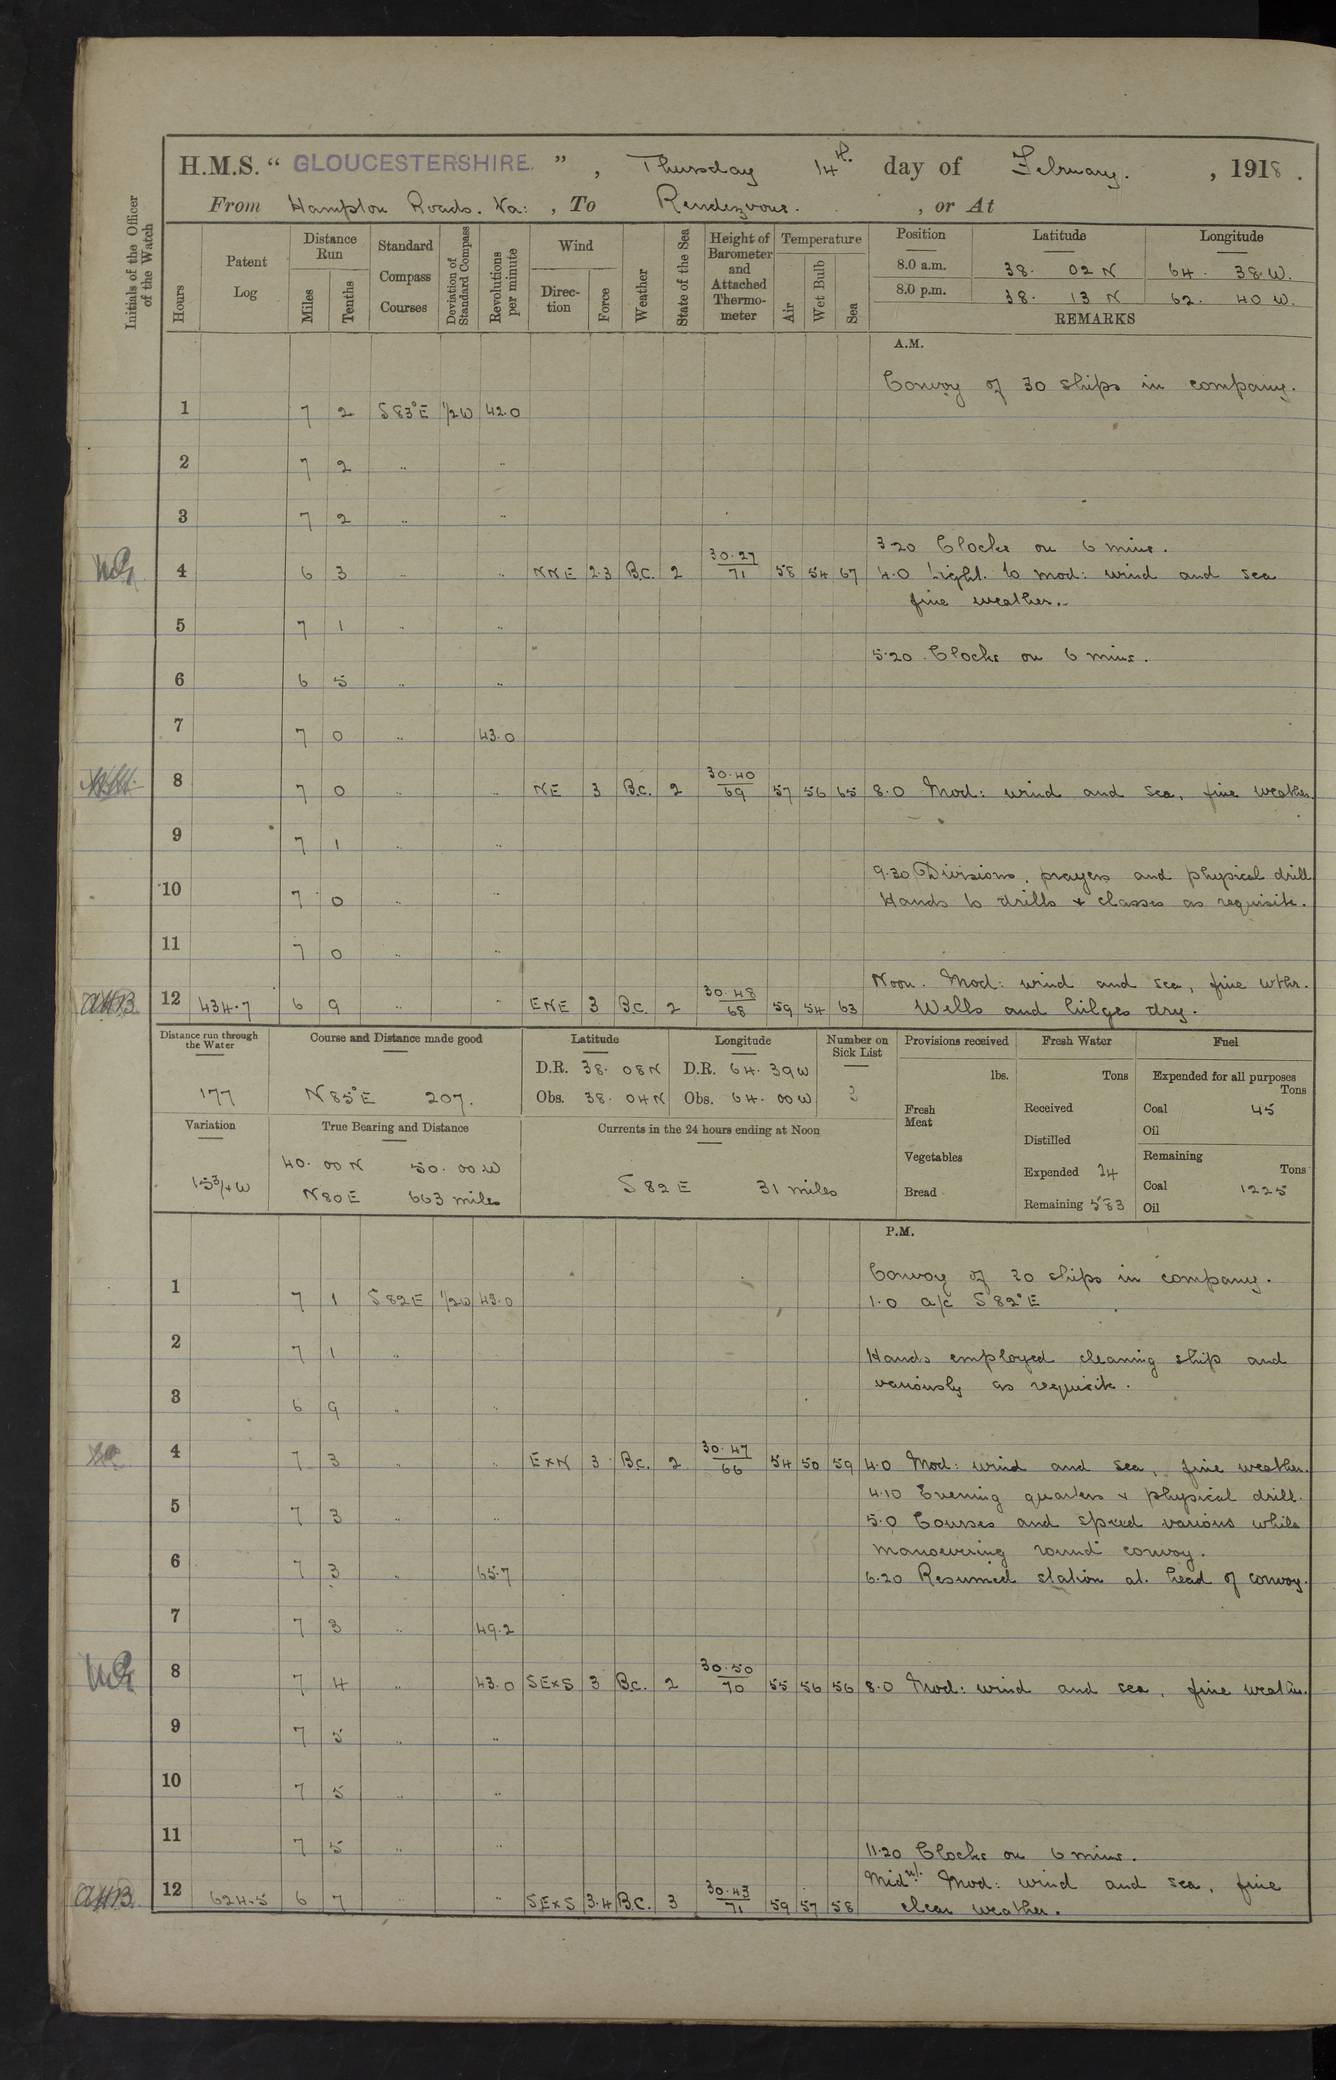 H.M.S. " GLOUCESTERSHIRE. ", Thursday 14th. day of February. , 1918 .
From Hampton Roads. Va: , To Rendezvous. , or At
Initials of the Officer of the Watch
Hours
Patent Log
Distance Run
Miles
Tenths
Standard Compass Courses
Deviation of Standard Compass
Revolutions per minute
Wind
Direction
Force
Weather
State of the Sea
Height of Barometer and Attached Thermometer
Temperature
Air
Wet Bulb
Sea
Position Latitude Longitude
8.0 a.m. 38. 02 N 64. 38. W.
8.0 p.m. 38. 13 N 62. 40 W.
REMARKS
A.M.
Convoy of 30 ships in company.
1 7 2 S 83°E 1/2W 42.0
2 7 2 .. ..
3 7 2 .. ..
3.20 Clocks on 6 mins.
4 6 3 .. .. NNE 2.3 B.C. 2 30.27/71 58 54 67 4.0 Light. to mod: wind and sea
fine weather..
5 7 1 .. ..
5.20 Clocks on 6 mins.
6 6 5 .. ..
7 7 0 .. 43.0
8 7 0 .. .. NE 3 B.C. 2 30.40/69 57 56 65 8.0 Mod: wind and sea, fine weather.
9 7 1 .. ..
9.30 Divisions, prayers and physical drill
10 7 0 .. .. Hands to drills + classes as requisite.
11 7 0 .. ..
Noon. Mod: wind and sea, fine wthr.
12 434.7 6 9 .. .. ENE 3 B.C. 2 30.48/68 59 54 63 Wells and bilges dry.
Distance run through the Water
177
Course and Distance made good
N 85°E 207.
Latitude
D.R. 38. 08 N
Obs. 38. 04 N
Longitude
D.R. 64. 39 W
Obs. 64. 00 W
Number on Sick List
Provisions received
lbs.
Fresh Meat
Vegetables
Bread
Fresh Water
Tons
Received
Distilled
Expended 24
Remaining 583
Fuel
Expended for all purposes
Tons
Coal 45
Oil
Remaining
Tons
Coal 1225
Oil
Variation
15 3/4 W
True Bearing and Distance
40. 00 N 50. 00 W
N 80 E 663 miles
Currents in the 24 hours ending at Noon
S 82 E 31 miles
P.M.
Convoy of 30 ships in company.
1 7 1 S 82 E 1/2W 43.0 1.0 a/c S 82°E
2 7 1 .. Hands employed cleaning ship and
variously as requisite.
3 6 9 .. ..
4 7 3 .. .. ExN 3 B.C. 2 30.47/66 54 50 59 4.0 Mod: wind and sea, fine weather.
4.10 Evening quarters + physical drill.
5 7 3 .. .. 5.0 Courses and speed various while
manoevering round convoy.
6 7 3 .. 65.7 6.20 Resumed station at. head of convoy.
7 7 3 .. 49.2
8 7 4 .. 43.0 SExS 3 B.C. 2 30.50/70 55 56 56 8.0 Mod: wind and sea, fine weather.
9 7 5 .. ..
10 7 5 .. ..
11 7 5 .. .. 11.20 Clocks on 6 mins.
Midnt. Mod: wind and sea, fine
12 624.5 6 7 .. .. SExS 3.4 B.C. 3 30.43/71 59 57 58 clear weather.